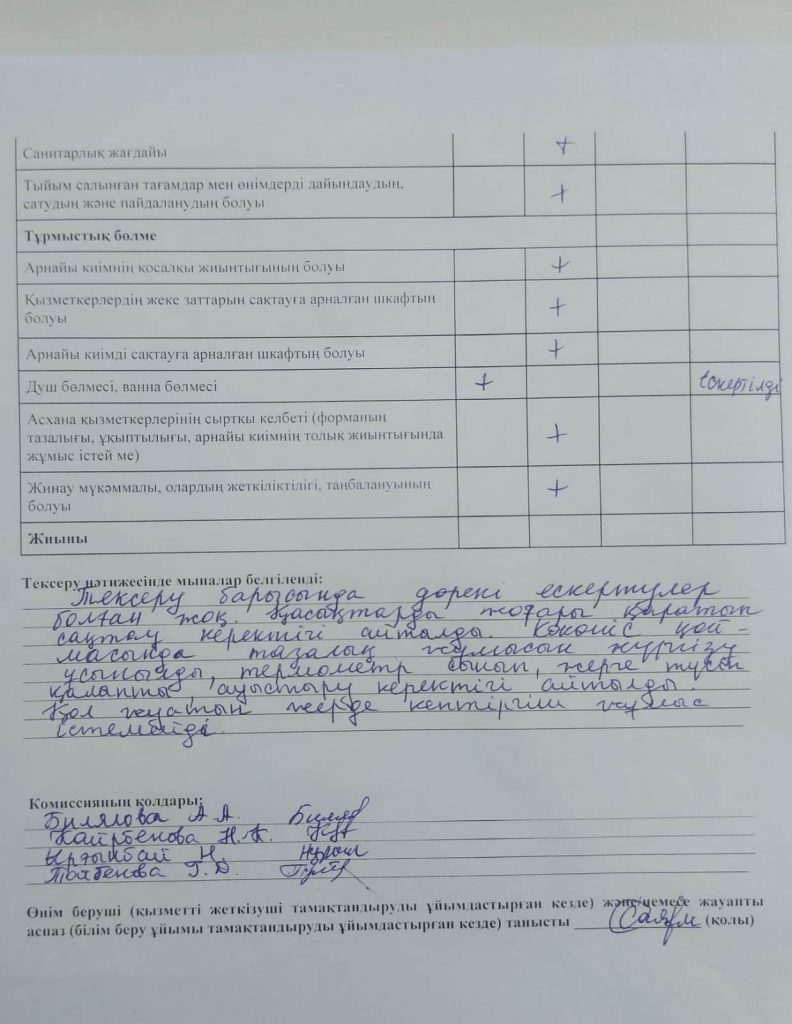 Санитарлық жағдайы +
Тыйым салынған тағамдар мен өнімдерді дайындаудың,
сатудың және пайдаланудың болуы +
Тұрмыстық бөлме
Арнайы киімнің қосалқы жиынтығының болуы +
Қызметкерлердің жеке заттарын сақтауға арналған шкафтың
болуы +
Арнайы киімді сақтауға арналған шкафтың болуы +
Душ бөлмесі, ванна бөлмесі + Ескертілді
Асхана қызметкерлерінің сыртқы келбеті (форманың
тазалығы, ұқыптылығы, арнайы киімнің толық жиынтығында +
жұмыс істей ме)
Жинау мүкәммалы, олардың жеткіліктілігі, таңбалануының +
болуы
Жиыны
Тексеру нәтижесінде мыналар белгіленді:
Тексеру барысында дөрекі ескертулер
болған жоқ. Қасықтарды жоғары қаратып
сақтау керектігі айтылды. Көкөніс қой-
масында тазалық жұмысын жүргізу
ұсынылды, термометр сынып, жерге түсіп
қалапты, ауыстыру керектігі айтылды.
Қол жуатын жерде кептіргіш жұмыс
істемейді.
Комиссияның қолдары:
Билялова А.А.
Каирбекова Н.К.
Ырғынбай Н.
Г.Д.
Өнім беруші (қызметті жеткізуші тамақтандыруды ұйымдастырған кезде) және/немесе жауапты
аспаз (білім беру ұйымы тамақтандыруды ұйымдастырған кезде) танысты (қолы)